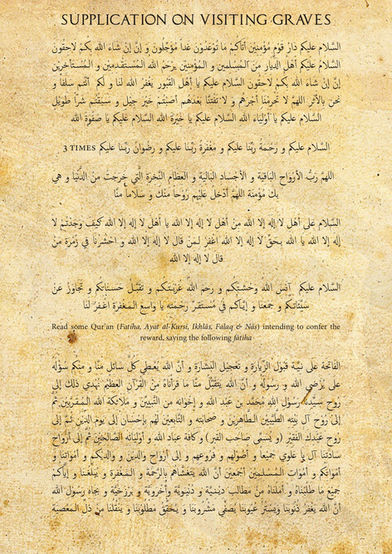 SUPPLICATION ON VISITING GRAVES
السَّلام عليكم دَارَ قَوم مُؤمنين أتاكُم ما تُوعَدُون غَداً مُؤَجَّلُون وَ إنَّ إنْ شَاءَ اللَّه بكُمْ لاحقُون
السَّلام عليكم أهلَ الدِيار مِنَ المُسلمين و المُؤمنين يَرحَمُ اللَّه المُستَقدمين و المُستأخرين
إنَّ إنْ شَاءَ اللَّه بكُمْ لاحقُون السَّلام عليكم يا أهلَ القُبور يَغفر اللَّه لنا و لكم أنتُم سلفُنا و
نَحن بالأثر اللهمَّ لا تَحرمنا أجرَهُم و لا تَفتنَّا بعدَهم أصبتُم خَير جَزيل و سبقتُم شراً طويل
السَّلام عليكم يا أولياءَ اللَّه السَّلام عليكم يا خيرَةَ اللَّه السَّلام عليكم يا صَفوةَ اللَّه
السَّلام عليكم و رحمَةُ ربِّنا عليكم و مغفرَةُ ربِّنا عليكم و رضوَانُ ربِّنا عليكم 3 TIMES
اللهمَّ ربَّ الأرواح البَاقية و الأجساد البَالية و العظَام النَّخرة التي خرجَت من الدُّنيا و هي
بكَ مؤمنة اللهمَّ أدخل عليهم رَوحاً منكَ و سلاماً منَّا
السَّلام على أهل لا إله إلا الله من أهل لا إله إلا الله يا أهل لا إله إلا الله كيف وجدتُم لا
إله إلا الله يا الله بحقِّ لا إله إلا الله اغفر لمن قال لا إله إلا الله و احشرنا في زُمرة مَن
قال لا إله إلا الله
السَّلام عليكم آنس الله وحشتكم و رحم الله غربتكم و تقبَّل حسناتكم و تجاوز عن
سيِّئاتكم و جمعنا و إيَّاكم في مُستقرِّ رحمته يا واسع المغفرة اغفر لنا
Read some Qur'an (Fatiha, Ayat al-Kursi, Ikhlās, Falaq & Nās) intending to confer the
reward, saying the following fatiha
الفاتحة على نيَّة قبول الزِّيارة و تعجيل البشارة و أنَّ الله يُعطي كلَّ سائل منَّا و منكم سُؤلَه
على رُضى الله و رسوله و أنَّ الله يتقبَّل منَّا ما قرأناه من القُرآن العظيم نهدي ذلك إلى
روح سيِّدنا رسول الله مُحمَّد بن عبد الله و إخوانه من النَّبيين و ملائكة الله المقرَّبين ثمَّ
إلى روح آل بيته الطَّيبين الطَّاهرين و صحابته و التَّابعين لهم بإحسان إلى يوم الدِّين ثمَّ إلى
روح عبدك الفقير ( و يُسمَّى صاحب القبر ) و كافة عباد الله و أوليائه الصَّالحين ثمَّ إلى أرواح
سادتنا آل با علوي جميعاً و أصولهم و فروعهم و إلى أرواح والدينَ و والديكم و أمواتنا و
أمواتكم و أموات المُسلمين أجمعين أنَّ الله يتغشَّاهم بالرَّحمة و المغفرة و يبلِّغنا و إيَّاكم
جميع ما طلبناهُ و أمَّلناهُ من مطالب دينيَّة و دنيويَّة و أخرويَّة و برزخيَّة و بجاه رسول الله
أنَّ الله يغفر ذُنوبنا و يستر عيوبنا يُصفِّي مشروبنا و يُحقِّق مطلوبنا و ينقلنا من ذل المعصية